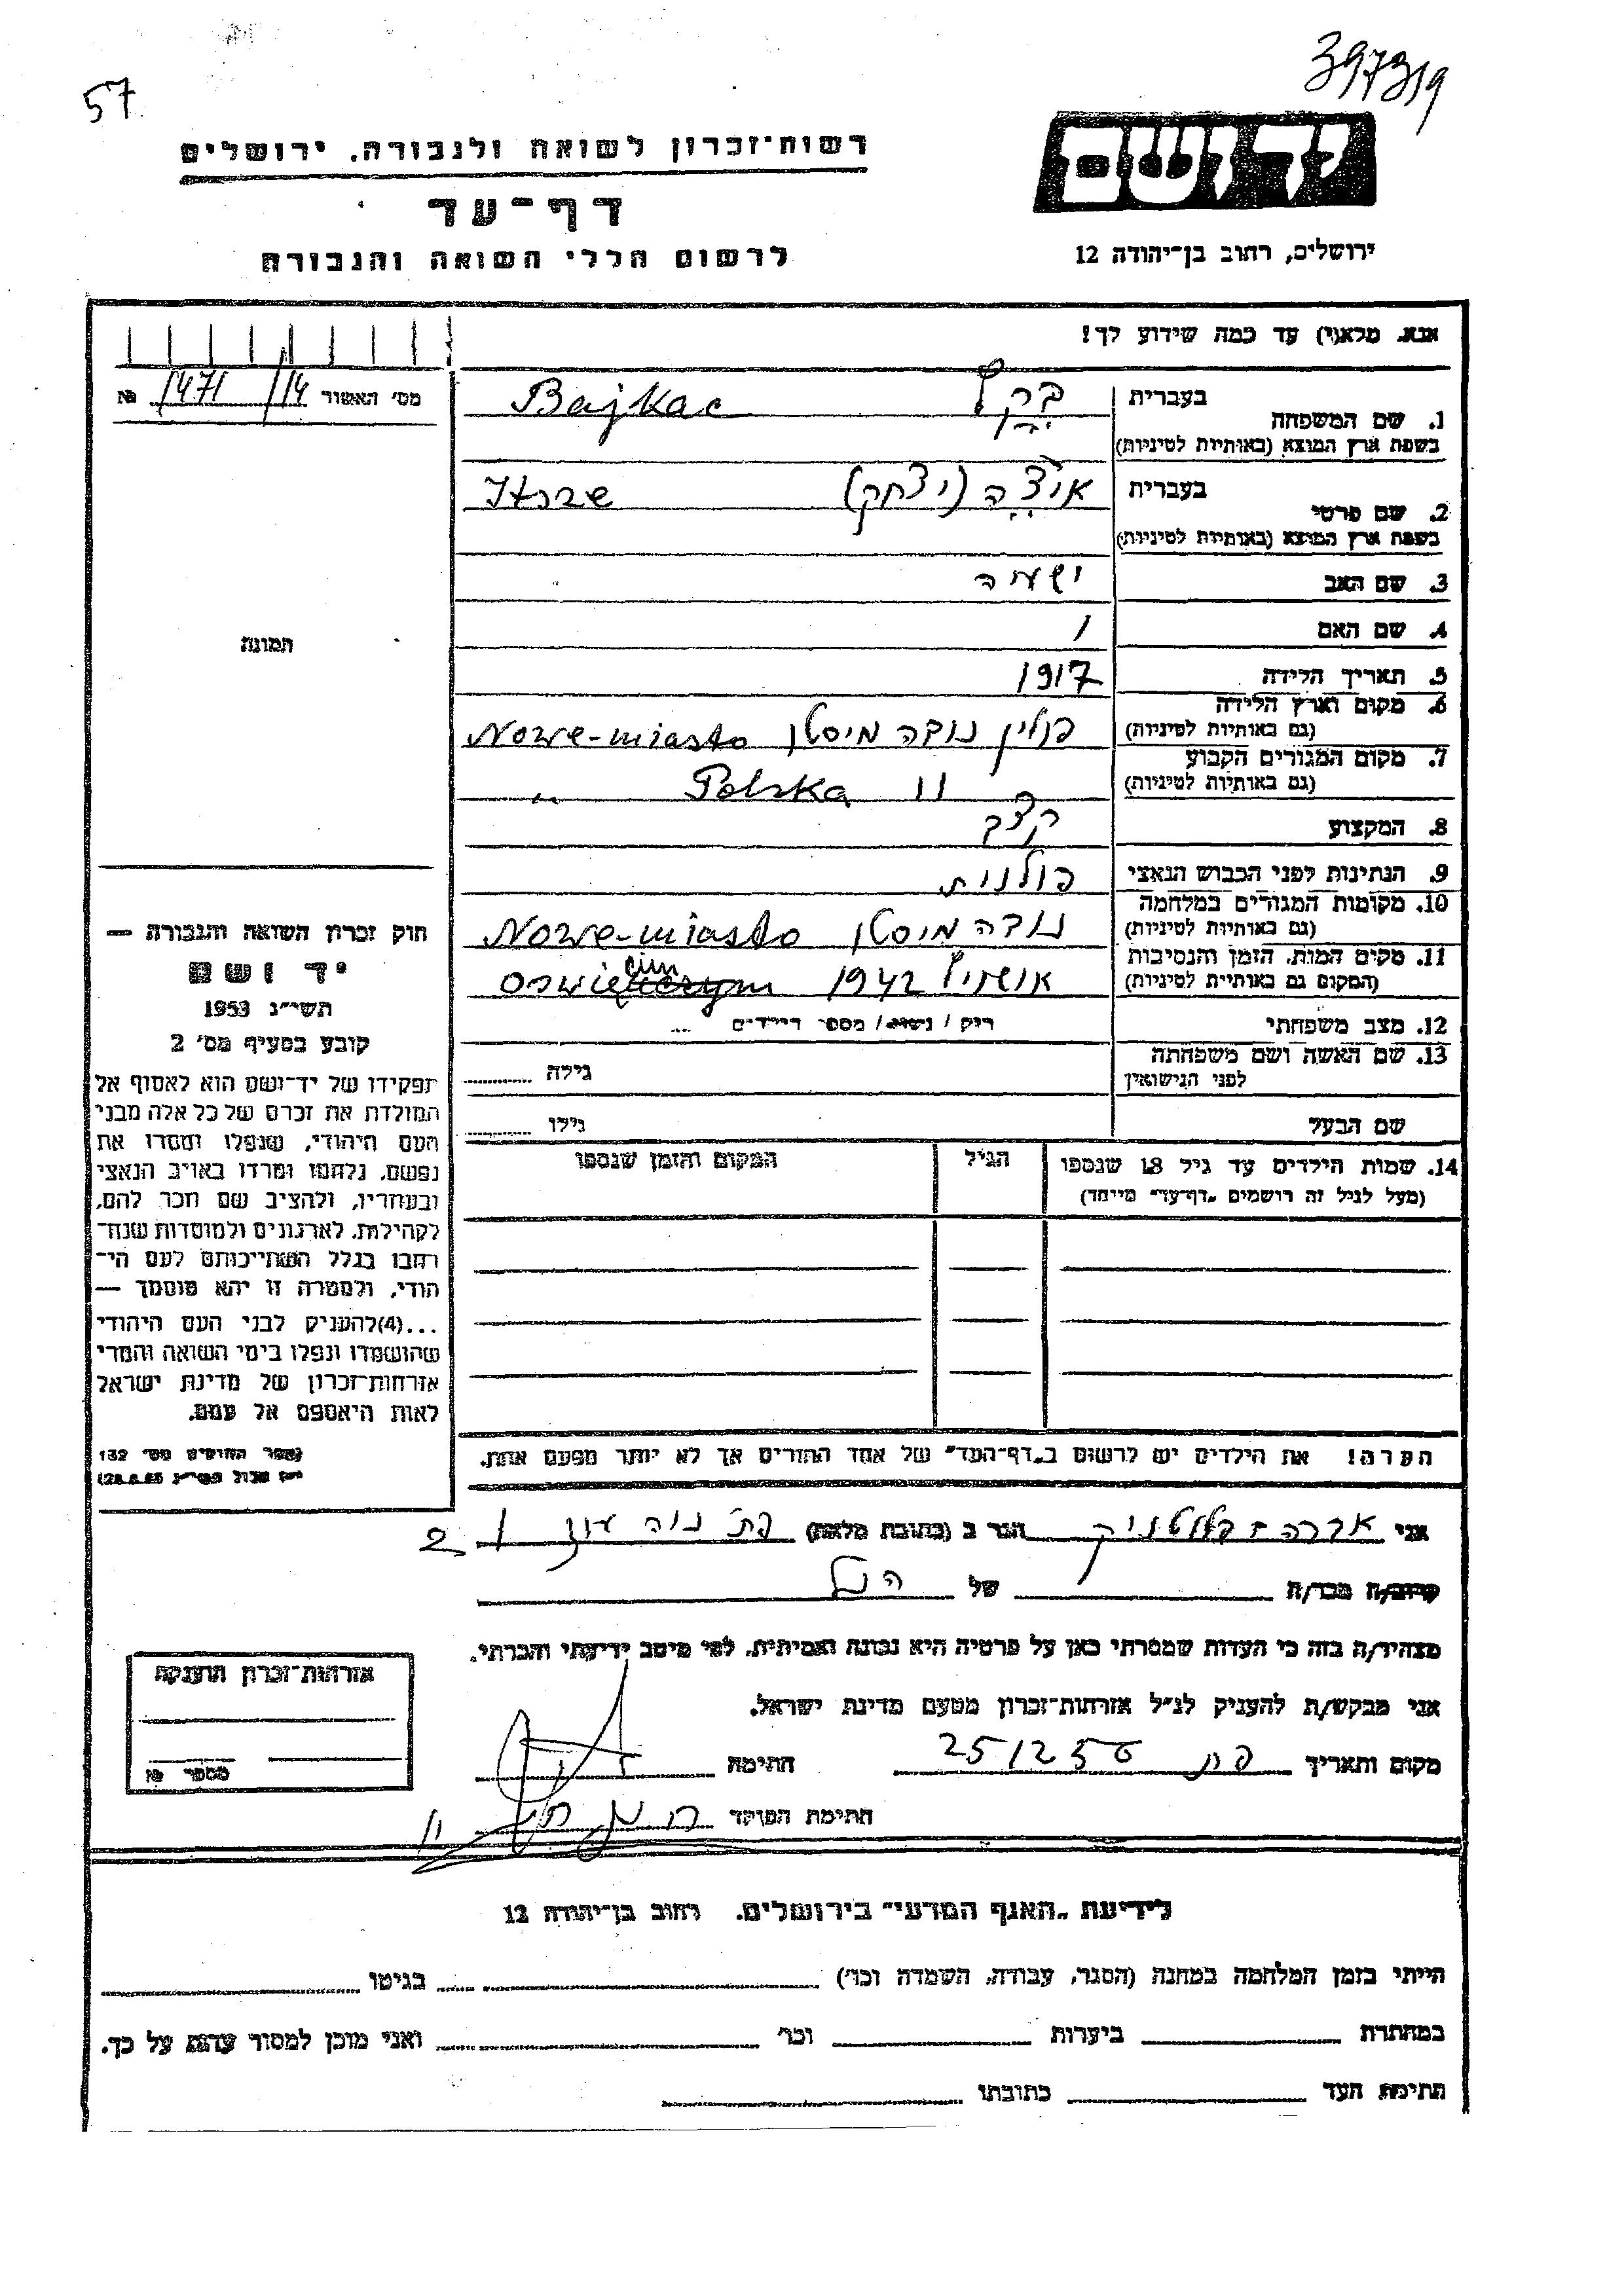 397319
57
יד ושם
רשות־זכרון לשואה ולגבורה, ירושלים
דף־עד
לרשום חללי השואה והגבורה
ירושלים, רחוב בן־יהודה 12
אנא, מלא(י) עד כמה שידוע לך!
מס׳ האשור 14/1471 №
1. שם המשפחה בעברית Bajkac
בשפת ארץ המוצא (באותיות לטיניות)
2. שם פרטי בעברית איצה (יצחק)
בשפת ארץ המוצא (באותיות לטיניות)
3. שם האב ישעיה
4. שם האם /
5. תאריך הלידה 1917
6. מקום וארץ הלידה
(גם באותיות לטיניות) פולין נובה מיסטו Nowe-miasto
7. מקום המגורים הקבוע
(גם באותיות לטיניות) " Polska "
8. המקצוע קצב
9. הנתינות לפני הכבוש הנאצי פולנית
10. מקומות המגורים במלחמה
(גם באותיות לטיניות) נובה מיסטו Nowe-miasto
11. מקום המות, הזמן והנסיבות
(המקום גם באותיות לטיניות) אושויץ 1942 Oswięcim
12. מצב משפחתי רוק / נשוי / מספר הילדים ...
13. שם האשה ושם משפחתה
לפני הנישואין גילה
שם הבעל גילו
14. שמות הילדים עד גיל 18 שנספו הגיל המקום והזמן שנספו
(מעל לגיל זה רושמים „דף־עד” מיוחד)
הערה! את הילדים יש לרשום ב„דף־העד” של אחד ההורים אך לא יותר מפעם אחת.
תמונה
חוק זכרון השואה והגבורה —
יד ושם
תשי״ג 1953
קובע בסעיף מס׳ 2
תפקידו של יד־ושם הוא לאסוף אל
המולדת את זכרם של כל אלה מבני
העם היהודי, שנפלו ומסרו את
נפשם, נלחמו ומרדו באויב הנאצי
ובעוזריו, ולהציב שם וזכר להם,
לקהילות, לארגונים ולמוסדות שנח־
רבו בגלל השתייכותם לעם הי־
הודי, ולמטרה זו יהא מוסמך —
...(4)להעניק לבני העם היהודי
שהושמדו ונפלו בימי השואה והמרי
אזרחות־זכרון של מדינת ישראל
לאות היאספם אל עמם.
(ספר החוקים מס׳ 132
אני אברהם הגר ב (כתובת מלאה) פת נוה עוז
קרוב/ה מכר/ה של הנ״ל
מצהיר/ה בזה כי העדות שמסרתי כאן על פרטיה היא נכונה ואמיתית, לפי מיטב ידיעתי והכרתי.
אני מבקש/ת להעניק לנ״ל אזרחות־זכרון מטעם מדינת ישראל.
מקום ותאריך פת 25/2 56 חתימה
חתימת הפוקד
אזרחות־זכרון הוענקה
מספר №
לידיעת „האגף המדעי” בירושלים, רחוב בן־יהודה 12
הייתי בזמן המלחמה במחנה (הסגר, עבודה, השמדה וכו׳) בגיטו
במחתרת ביערות וכו׳ ואני מוכן למסור עדות על כך.
חתימת העד כתובתו